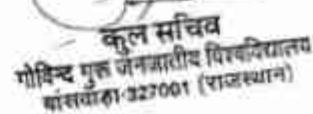 कुल सचिव
गोविन्द गुरू जनजातीय विश्वविद्यालय
बांसवाड़ा-327001 (राजस्थान)